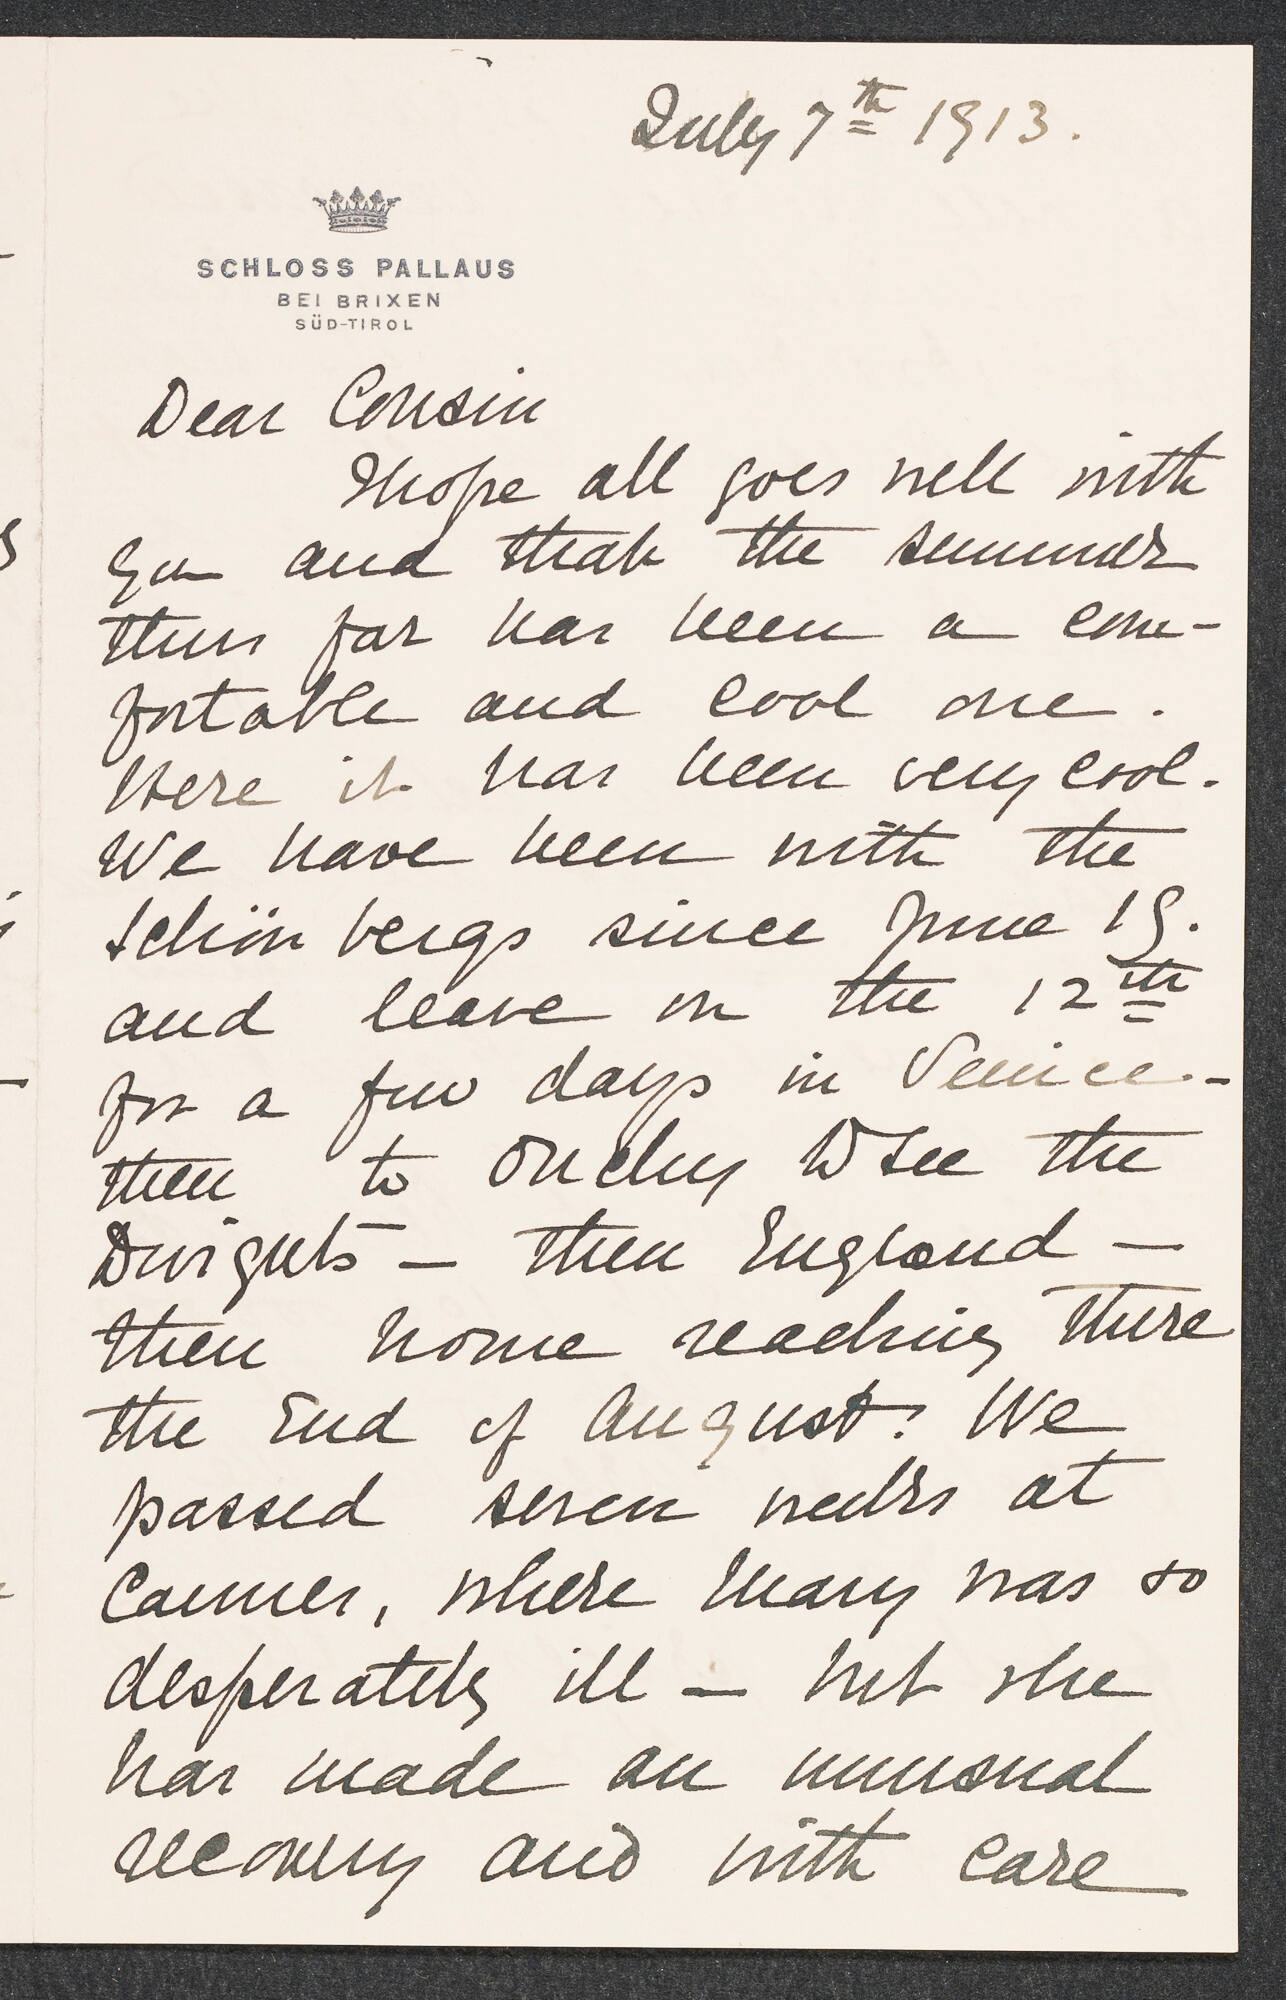 July 7th 1913.
SCHLOSS PALLAUS
BEI BRIXEN
SÜD-TIROL
Dear Cousin
I hope all goes well with
you and that the summer
thus far has been a com-
fortable and cool one.
Here it has been very cool.
We have been with the
Schönbergs since June 19.
and leave on the 12th
for a few days in Venice-
then to Ouchy to see the
Dwights - then England -
then home reaching there
the end of August. We
passed seven weeks at
Cannes, where Mary was so
desperately ill - but she
has made an unusual
recovery and with care